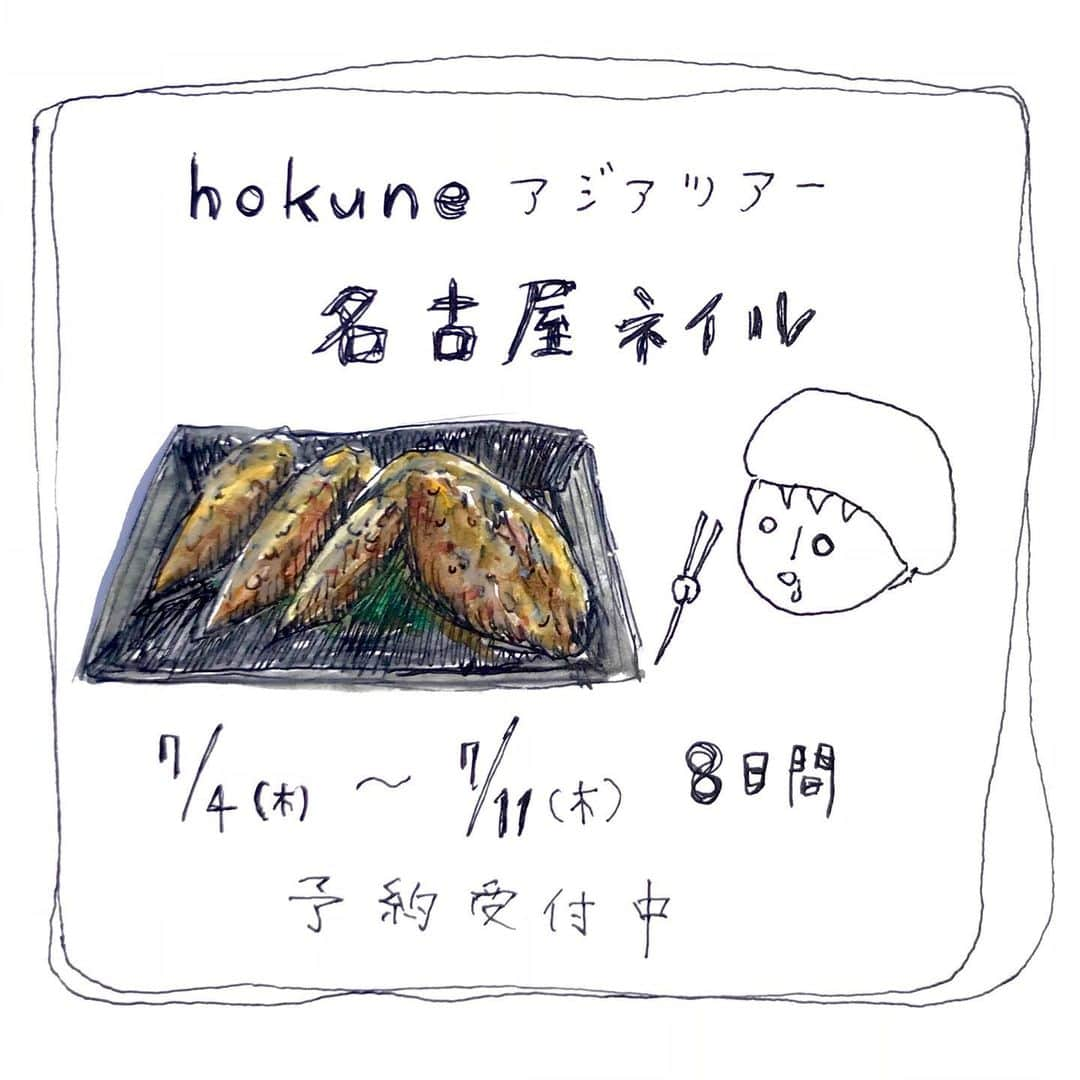 hokune アジアツアー
名古屋ネイル
7/4(木) 〜 7/11(木) 8日間
予約受付中